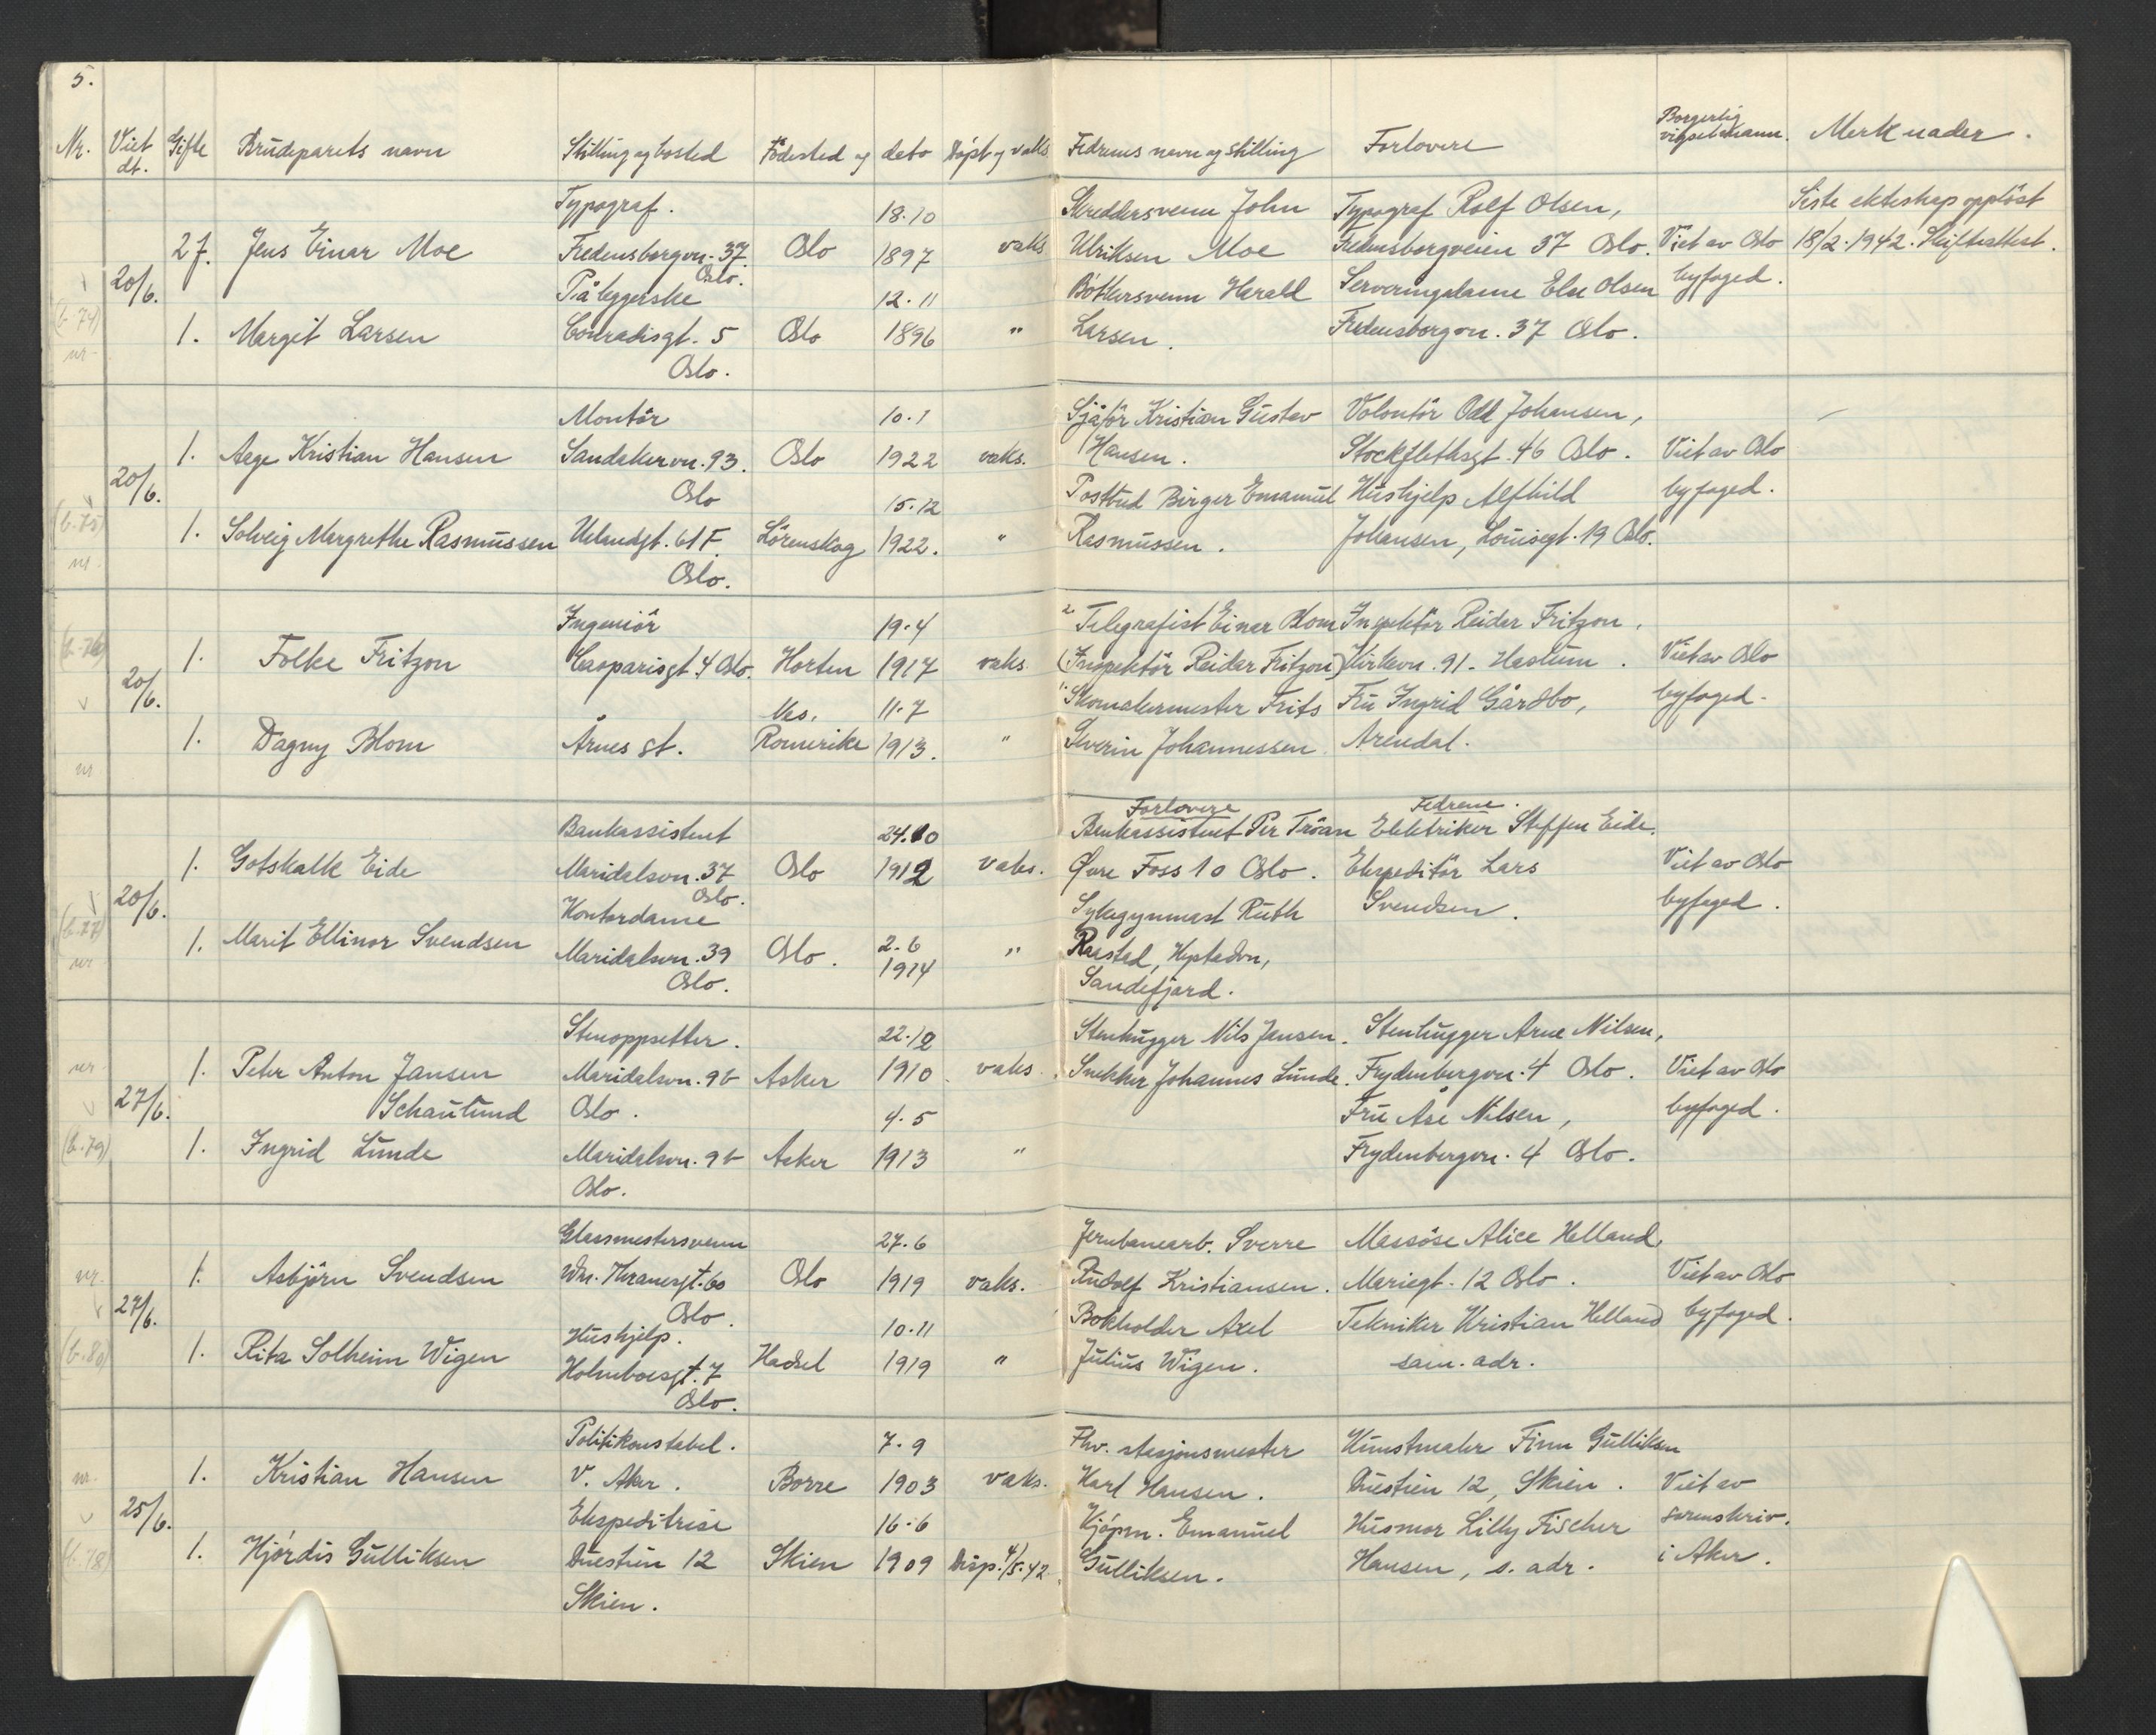 5.
Nr. Viet dt. Gifte Brudeparets navn Stilling og bosted Födested og dato Döpt og vaks. Fedrenes navn og stilling Forlovere Borgerlig vigselsmann. Merknader.
Typograf. 18.10 Skreddersvenn John Typograf Rolf Olsen, Siste ekteskap opplöst
2 f. Jens Einar Moe Fredensborgvn. 37. Oslo 1897 vaks Ulriksen Moe Fredensborgveien 37 Oslo. Viet av Oslo 18/2. 1942. Skifteattest.
20/6. Oslo.
Påleggerske 12.11 Bötkersvenn Harald Serveringsdame Else Olsen byfoged.
(b. 74)
1. Margit Larsen Conradisgt. 5 Oslo 1896 " Larsen. Fredensborgvn. 37 Oslo.
nr.
Oslo.
Montör 10.1 Sjåför Kristian Gustav Volontör Odd Johansen, –
1. Aage Kristian Hansen Sandakervn. 93. Oslo 1922 vaks. Hansen. Stockflethsgt. 46 Oslo. Viet av Oslo
20/6. Oslo 15.12 Postbud Birger Emanuel Hushjelp Alfhild byfoged.
(b. 75)
1. Solveig Margrethe Rasmussen Uelandsgt. 61 F. Lörenskog 1922. " Rasmussen. Johansen, Louisegt. 19 Oslo.
nr.
Oslo.
Ingeniör 19.4 2 Telegrafist Einar Blom Inspektör Reidar Fritzon.
(b. 76)
1. Folke Fritzon Casparisgt. 4 Oslo. Horten 1917 vaks. (Inspektör Reidar Fritzon) Kirkevn. 91. Haslum. Viet av Oslo
20/6. Nes. 11.7 1. Skomakermester Frits Fru Ingrid Gårdbo, byfoged.
1. Dagny Blom Årnes st. Romerike 1913. " Severin Johannessen Arendal.
nr
Forlovere Fedrene.
Bankassistent 24.10 Bankassistent Per Tröan Elektriker Steffen Eide.
1. Gotskalk Eide Maridalsvn. 37 Oslo 1912 vaks. Övre Foss 10 Oslo. Ekspeditör Lars Viet av Oslo
20/6. Oslo.
Kontordame Sykegymnast Ruth Svendsen. byfoged.
(b. 77)
1. Marit Ellinor Svendsen Maridalsvn. 39 Oslo. 2.6 " Raastad,
nr
1914
Oslo. Sandefjord.
Stenoppsetter. 22.12 Stenhugger Nils Jansen. Stenhugger Arne Nilsen,
nr.
1. Peter Anton Jansen Maridalsvn. 9b Asker 1910. vaks. Snekker Johannes Lunde. Frydenbergvn. 4 Oslo. Viet av Oslo
27/6. Schaulund Oslo. 4.5 Fru Åse Nilsen, byfoged.
(b. 79)
1. Ingrid Lunde Maridalsvn. 9b Asker 1913 " Frydenbergvn. 4 Oslo.
Oslo.
Glassmestersvenn 27.6 Jernbanearb. Sverre Massöse Alice Helland,
nr.
1. Asbjörn Svendsen Wm. Thranesgt. 60 Oslo 1919 vaks. Rudolf Kristiansen. Mariegt. 12 Oslo. Viet av Oslo
27/6. Oslo. 10.11 Bokholder Axel Tekniker Kristian Helland byfoged.
Hushjelp.
(b. 80)
1. Rita Solheim Wigen Holmboesgt. 7 Hadsel 1919 " Julius Wigen. sam. adr.
Oslo.
Politikonstabel. 7.9 Fhv. stasjonsmester Kunstmaler Finn Gulliksen
nr.
1. Kristian Hansen V. Aker. Borre 1903 vaks. Karl Hansen. Duestien 12, Skien. Viet av
25/6. Ekspeditrise 16.6 Kjöpm. Emanuel Husmor Lilly Fischer sorenskriv.
(b. 78)
1. Hjördis Gulliksen Duestien 12 Skien 1909 Disp. 4/5.42. Gulliksen. Hansen, s. adr. i Aker.
Skien.